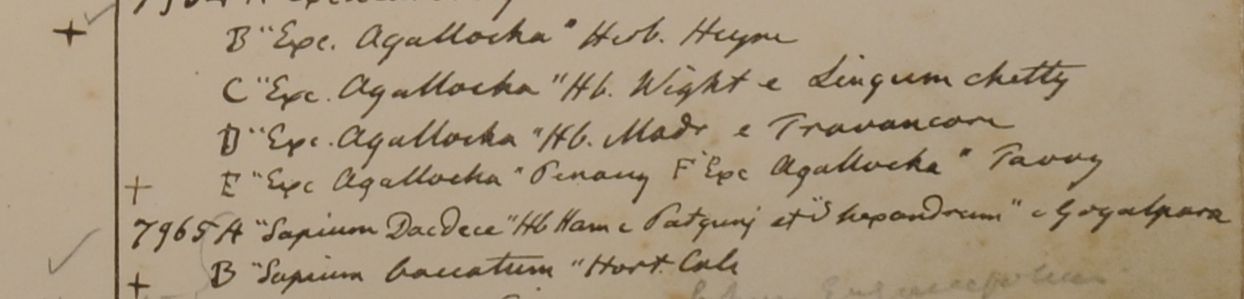 B "Exc. Agallocha" Herb. Heyne
C "Exc. Agallocha" Hb. Wight e Lingum chetty
D "Exc. Agallocha" Hb. Madr e Travancore
E "Exc Agallocha" Penang F "Exc Agallocha" Tavoy
7965 A "Sapium Dacdece" Hb Ham e Patgunj et "S hexandrum" e Goyalpara
B "Sapium baccatum" Hort. Calc